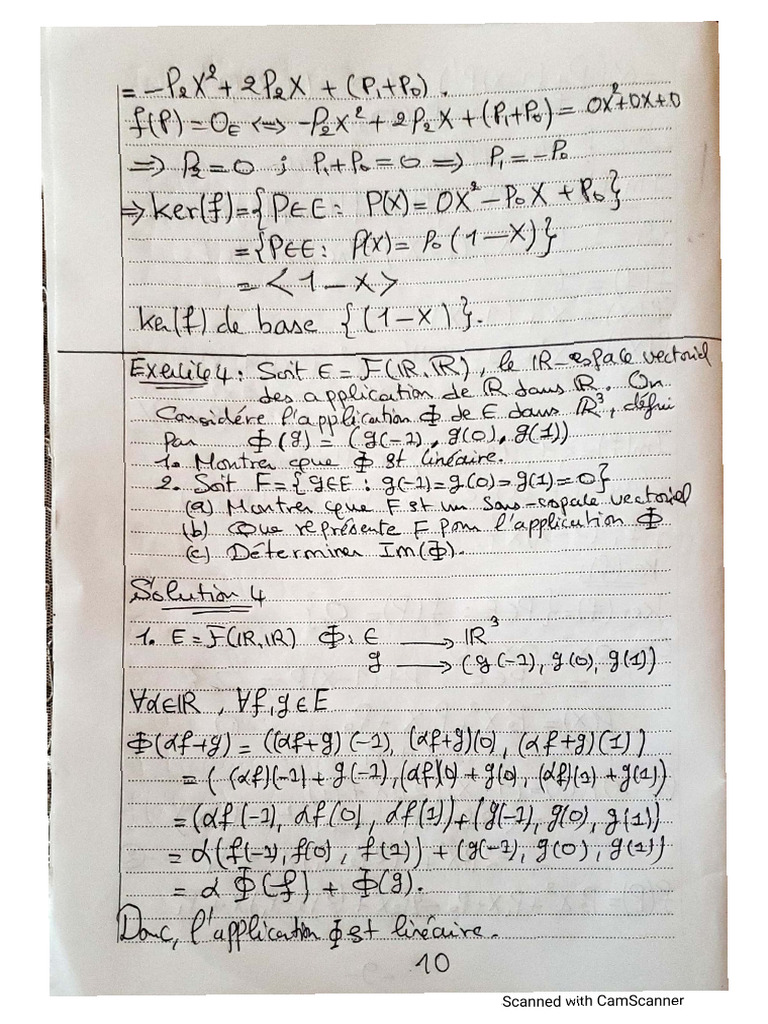 = -P₂X² + 2P₂X + (P₁+P₀).
f(P) = 0_E ⟺ -P₂X² + 2P₂X + (P₁+P₀) = 0X²+0X+0
⟹ P₂=0 ; P₁+P₀=0 ⟹ P₁=-P₀
⟹ Ker(f)={P∈E: P(X)=0X²-P₀X+P₀}
={P∈E: P(X)=P₀(1-X)}
=<1-X>
Ker(f) de base {(1-X)}.
Exercice 4: Soit E=F(IR,IR), le IR-espace vectoriel
des application de IR dans IR. On
Considére l'application Φ de E dans IR³, défini
par Φ(g) = (g(-1), g(0), g(1))
1. Montrer que Φ est linéaire.
2. Soit F={g∈E : g(-1)=g(0)=g(1)=0}
(a) Montrer que F est un Sous-espace vectoriel
(b) Que représente F pour l'application Φ
(c) Déterminer Im(Φ).
Solution 4
1. E=F(IR,IR) Φ: E ⟶ IR³
g ⟶ (g(-1), g(0), g(1))
∀α∈IR, ∀f,g∈E
Φ(αf+g) = ((αf+g)(-1), (αf+g)(0), (αf+g)(1))
= ((αf)(-1)+g(-1), (αf)(0)+g(0), (αf)(1)+g(1))
= (αf(-1), αf(0), αf(1))+(g(-1), g(0), g(1))
= α(f(-1), f(0), f(1)) + (g(-1), g(0), g(1))
= α Φ(f) + Φ(g).
Donc, l'application Φ est linéaire.
10
Scanned with CamScanner